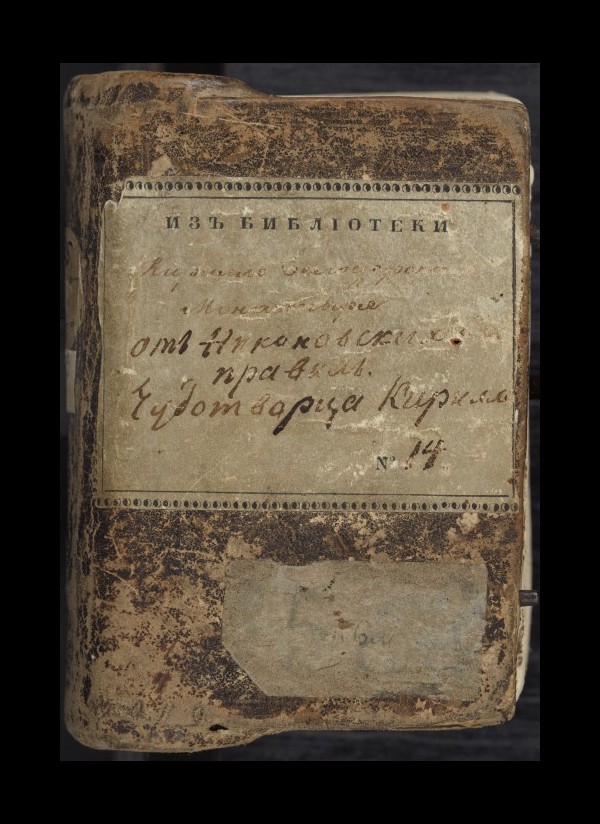 ИЗЪ БИБЛІОТЕКИ
Кирилло Белозерского
Монастыря
отъ Никоновскихъ
правилъ.
Чудотворца Кирилла
№ 14